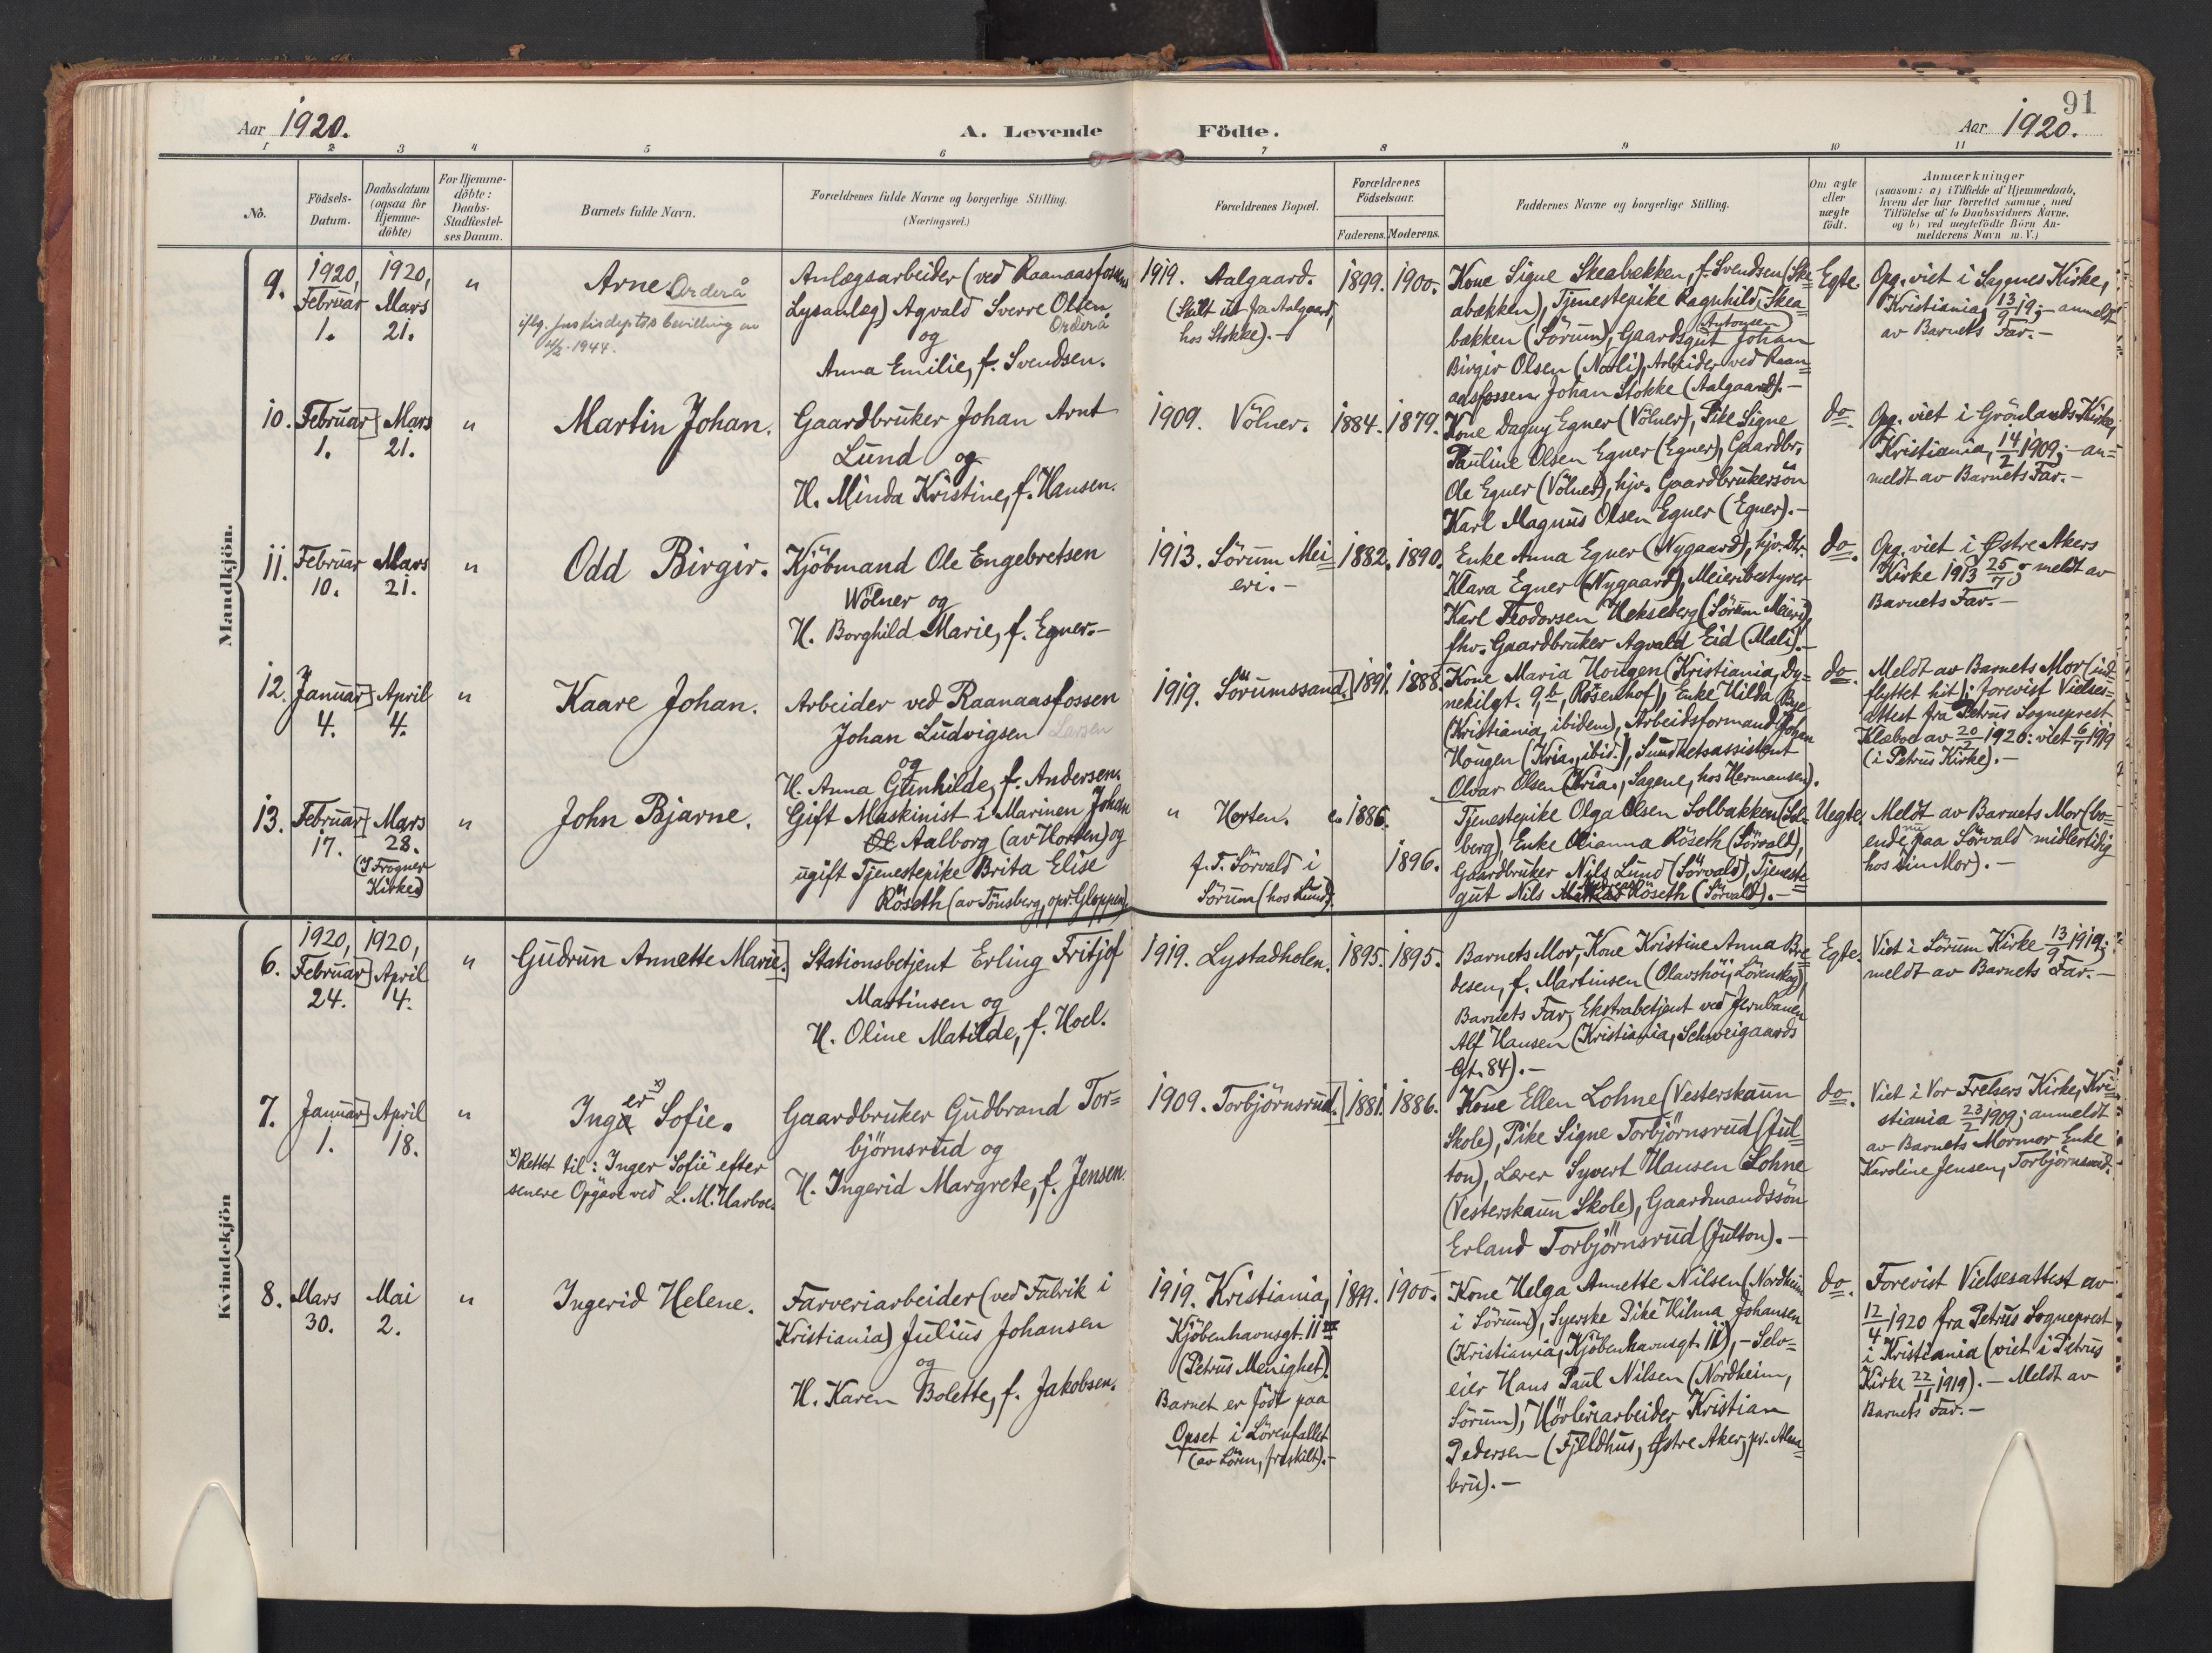 91
Aar 1920.
A. Levende Födte.
Aar 1920.
1 2 3 4 5 6 7 8 9 10 11
No.
Födsels-
Datum.
Daabsdatum
(ogsaa for
Hjemme-
döbte)
For Hjemme-
döbte:
Daabs-
Stadfæstel-
ses Datum.
Barnets fulde Navn.
Forældrenes fulde Navne og borgerlige Stilling.
(Næringsvei.)
Forældrenes Bopæl.
Forældrenes
Födselsaar.
Faderens. Moderens.
Faddernes Navne og borgerlige Stilling.
Om ægte
eller
uægte
födt.
Anmærkninger
(saasom: a) i Tilfælde af Hjemmedaab,
hvem der har forrettet samme, med
Tilföielse af to Daabsvidners Navne,
og b) ved uægtefödte Börn An-
melderens Navn m.V.)
Mandkjön.
9.
1920,
Februar
1.
1920,
Mars
21.
"
Arne Orderå
iflg. Justisdeptts bevilling av
4/2-1944.
Anlægsarbeider (ved Raanaasfossens
Lysanlæg) Agvald Sverre Olsen,
Orderå
og
Anna Emilie, f. Svendsen.
1919. Aalgaard.
(Skilt ut fra Aalgaard,
hos Stokke).-
1899. 1900.
Kone Signe Skeabækken, f. Svendsen (Ske-
abækken), Tjenestepike Ragnhild Skea-
bækken (Sörum), Gaardsgut Johan
(Antonsen)
Birgir Olsen (Nordli), Arbeider ved Raan-
aasfossen Johan Stokke (Aalgaard).-
Egte.
Opg. viet i Sagenes Kirke,
Kristiania, 13/9 19;- anmeldt
av Barnets Far.-
10.
Februar
1.
Mars
21.
"
Martin Johan.
Gaardbruker Johan Arnt
Lund og
H. Minda Kristine, f. Hansen.
1909. Völner.
1884. 1879.
Kone Dagny Egner (Völner), Pike Signe
Pauline Olsen Egner (Egner), Gaardbr.
Ole Egner (Völner), hjv. Gaardbrukersön
Karl Magnus Olsen Egner (Egner).-
do.
Opg. viet i Grönlands Kirke,
Kristiania, 14/2 1909;- an=
meldt av Barnets Far.-
11.
Februar
10.
Mars
21.
"
Odd Birgir.
Kjöbmand Ole Engebretsen
Wölner og
H. Borghild Marie, f. Egner.-
1913. Sörum Mei=
eri.-
1882. 1890.
Enke Anna Egner (Nygaard), hjv. Dtr.
Klara Egner (Nygaard), Meieribestyrer
Karl Teodorsen Hekseberg (Sörum Meieri),
fhv. Gaardbruker Agvald Eid (Mali).-
do.
Opg. viet i Østre Akers
Kirke 1913 25/7; meldt av
Barnets Far.-
12.
Januar
4.
April
4.
"
Kaare Johan.
Arbeider ved Raanaasfossen
Johan Ludvigsen Larsen
og
H. Anna Gunhilde, f. Andersen.
1919. Sörumssand.
1891. 1888.
Kone Maria Hougen (Kristiania, Dy=
nekilgt. 9, b, Rosenhof), Enke Hilda Bye
(Kristiania, ibidem), Arbeidsformand Johan
Hougen (Kria., ibid.), Sundhetsassistent
Olvar Olsen (Kria., Sagene, hos Hermansen).
do.
Meldt av Barnets Mor (ind=
flyttet hit); forevist Vielses=
attest fra Petrus Sogneprest
Klæboe av 20/2 1920: viet 6/7 1919
(i Petrus Kirke).-
13.
Februar
17.
Mars
28.
(I Frogner
Kirke)
"
John Bjarne.
Gift Maskinist i Marinen Johan
Aalborg (av Horten) og
ugift Tjenestepike Brita Elise
Röseth (av Tönsberg, opr. Gloppen).
" Horten.
f. T. Sörvald i
Sörum (hos Lund).
c. 1886.
1896.
Tjenestepike Olga Olsen Solbakken (Sol-
berg), Enke Olianna Röseth (Sörvald),
Gaardbruker Nils Lund (Sörvald), Tjeneste=
gut Nils Andreas Röseth (Sörvald).-
Uegte.
Meldt av Barnets Mor (bo=
ende nu paa Sörvald midlertidig
hos sin Mor).-
Kvindekjön
6.
1920,
Februar
24.
1920,
April
4.
"
Gudrun Annette Marie.
Stationsbetjent Erling Fritjof
Martinsen og
H. Oline Matilde, f. Hoel.
1919. Lystadholen.
1895. 1895.
Barnets Mor, Kone Kristine Anna Bre=
desen, f. Martinsen (Olavshöi, Lörenskog),
Barnets Far, Ekstrabetjent ved Jernbanen
Alf Hansen (Kristiania, Schweigaards
Gt. 84).-
Egte.
Viet i Sörum Kirke 13/9 1919;
meldt av Barnets Far.-
7.
Januar
1.
April
18.
"
Inga er x) Sofie.
x) Rettet til: Inger Sofie efter
senere Opgave ved L. M. Harboe.
Gaardbruker Gudbrand Tor=
björnsrud og
H. Ingerid Margrete, f. Jensen.
1909. Torbjörnsrud.
1881. 1886.
Kone Ellen Lohne (Vesterskaun
Skole), Pike Signe Torbjörnsrud (Jul=
ton), Lærer Syvert Hansen Lohne
(Vesterskaun Skole), Gaardmandssön
Erland Torbjörnsrud (Julton).-
do.
Viet i Vor Frelsers Kirke, Kri=
stiania 23/2 1909; anmeldt
av Barnets Mormor Enke
Karoline Jensen, Torbjörnsrud.
8.
Mars
30.
Mai
2.
"
Ingerid Helene.
Farveriarbeider (ved Fabrik i
Kristiania) Julius Johansen
og
H. Karen Bolette, f. Jakobsen.
1919. Kristiania,
Kjöbenhavnsgt. 11 IV
(Petrus Menighet).
Barnet er född paa
Opset i Lörenfallet
(av Lören, fraskilt).-
1899. 1900.
Kone Helga Annette Nilsen (Nordheim
i Sörum), Syerske Pike Hilma Johansen
(Kristiania, Kjöbenhavnsgt. 11),- Selv=
eier Hans Paul Nilsen (Nordheim,
Sörum), Hövleriarbeider Kristian
Pedersen (Fjeldhus, Østre Aker, pr. Alna=
bru).-
do.
Forevist Vielsesattest av
12/4 1920 fra Petrus Sogneprest
i Kristiania (viet i Petrus
Kirke 22/11 1919).- Meldt av
Barnets Far.-